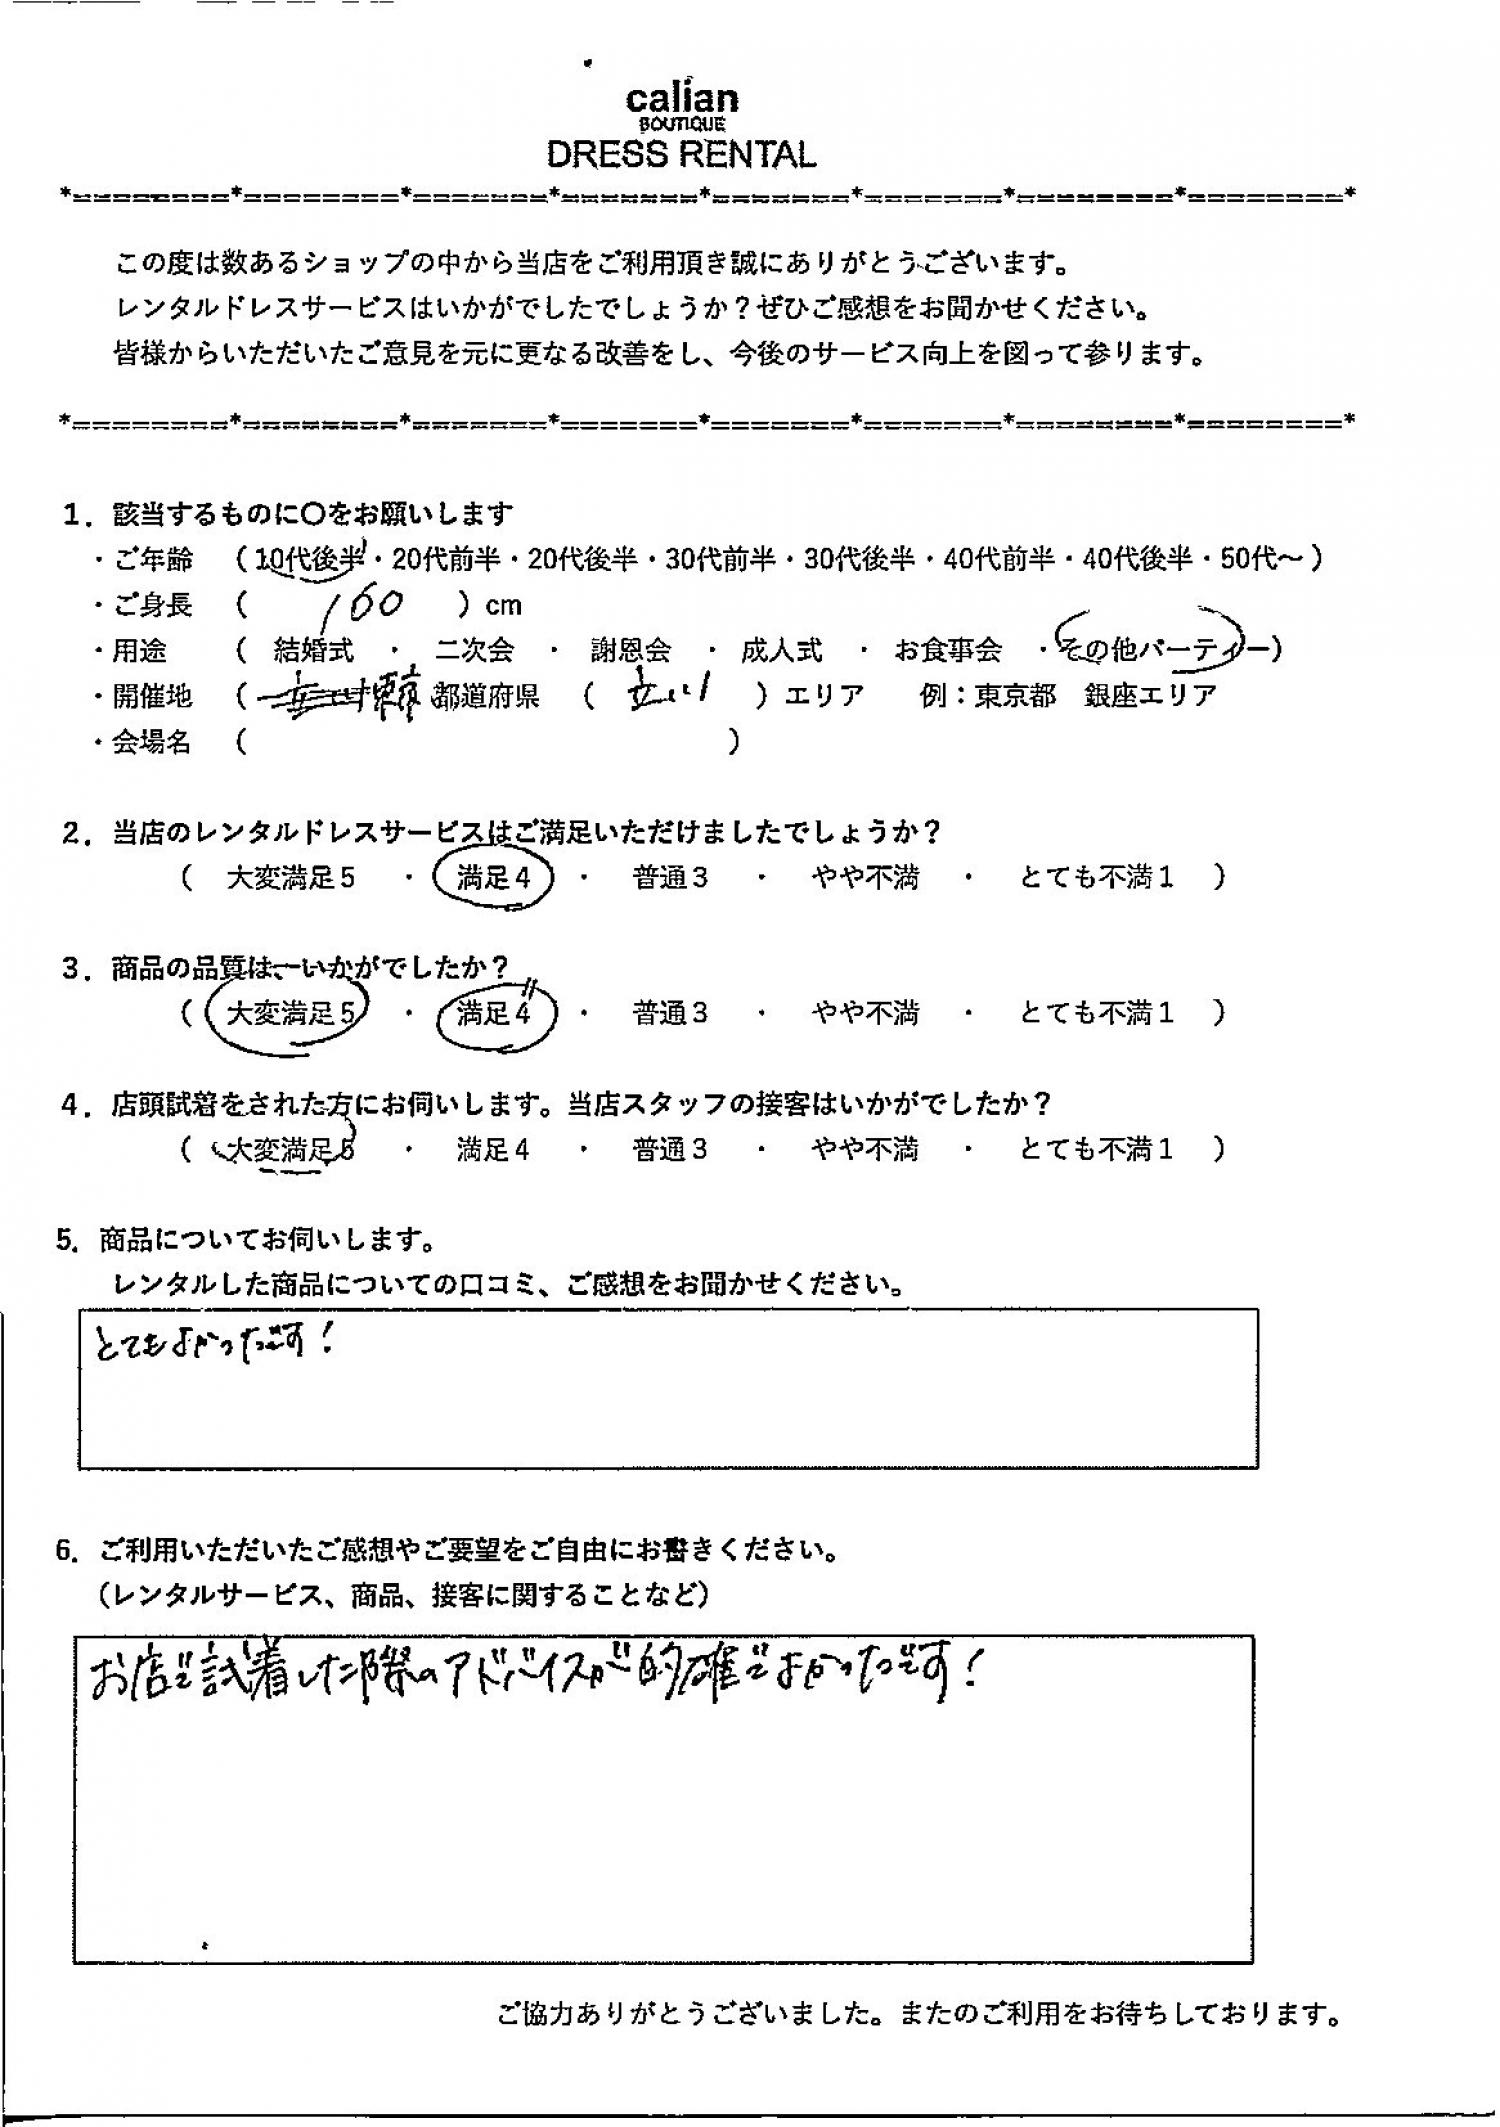 calian
BOUTIQUE
DRESS RENTAL
*========*========*=======*=======*=======*=======*========*========*
この度は数あるショップの中から当店をご利用頂き誠にありがとうございます。
レンタルドレスサービスはいかがでしたでしょうか？ぜひご感想をお聞かせください。
皆様からいただいたご意見を元に更なる改善をし、今後のサービス向上を図って参ります。
*========*========*=======*=======*=======*=======*========*========*
1．該当するものに〇をお願いします
・ご年齢 （10代後半・20代前半・20代後半・30代前半・30代後半・40代前半・40代後半・50代～）
・ご身長 （ 160 ）cm
・用途 （ 結婚式 ・ 二次会 ・ 謝恩会 ・ 成人式 ・ お食事会 ・その他パーティー）
・開催地 （ 都道府県 （ 立川 ）エリア 例：東京都 銀座エリア
・会場名 （ ）
2．当店のレンタルドレスサービスはご満足いただけましたでしょうか？
（ 大変満足5 ・ 満足4 ・ 普通3 ・ やや不満 ・ とても不満1 ）
3．商品の品質は、いかがでしたか？
（ 大変満足5 ・ 満足4 ・ 普通3 ・ やや不満 ・ とても不満1 ）
4．店頭試着をされた方にお伺いします。当店スタッフの接客はいかがでしたか？
（ 大変満足5 ・ 満足4 ・ 普通3 ・ やや不満 ・ とても不満1 ）
5．商品についてお伺いします。
レンタルした商品についての口コミ、ご感想をお聞かせください。
とてもよかったです！
6．ご利用いただいたご感想やご要望をご自由にお書きください。
（レンタルサービス、商品、接客に関することなど）
お店で試着した際のアドバイスが的確でよかったです！
ご協力ありがとうございました。またのご利用をお待ちしております。